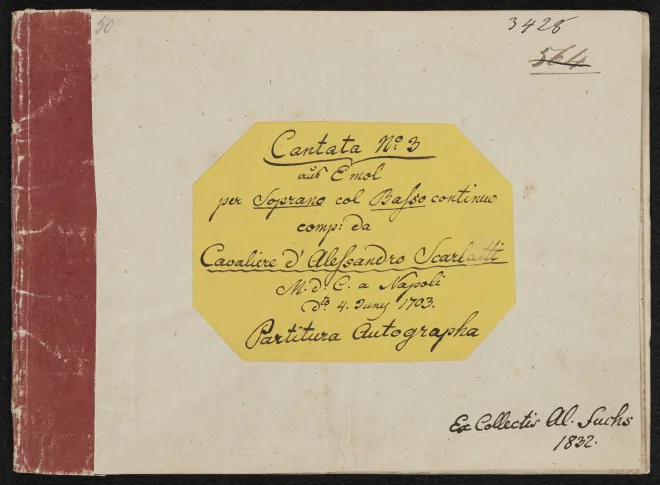 50
3428
564
Cantata No. 3
aus E mol
per Soprano col Basso continuo
comp: da
Cavaliere d' Alessandro Scarlatti
M. d. C. a Napoli
dto 4. Juny 1703.
Partitura Autographa
Ex Collectis Al. Fuchs
1832.